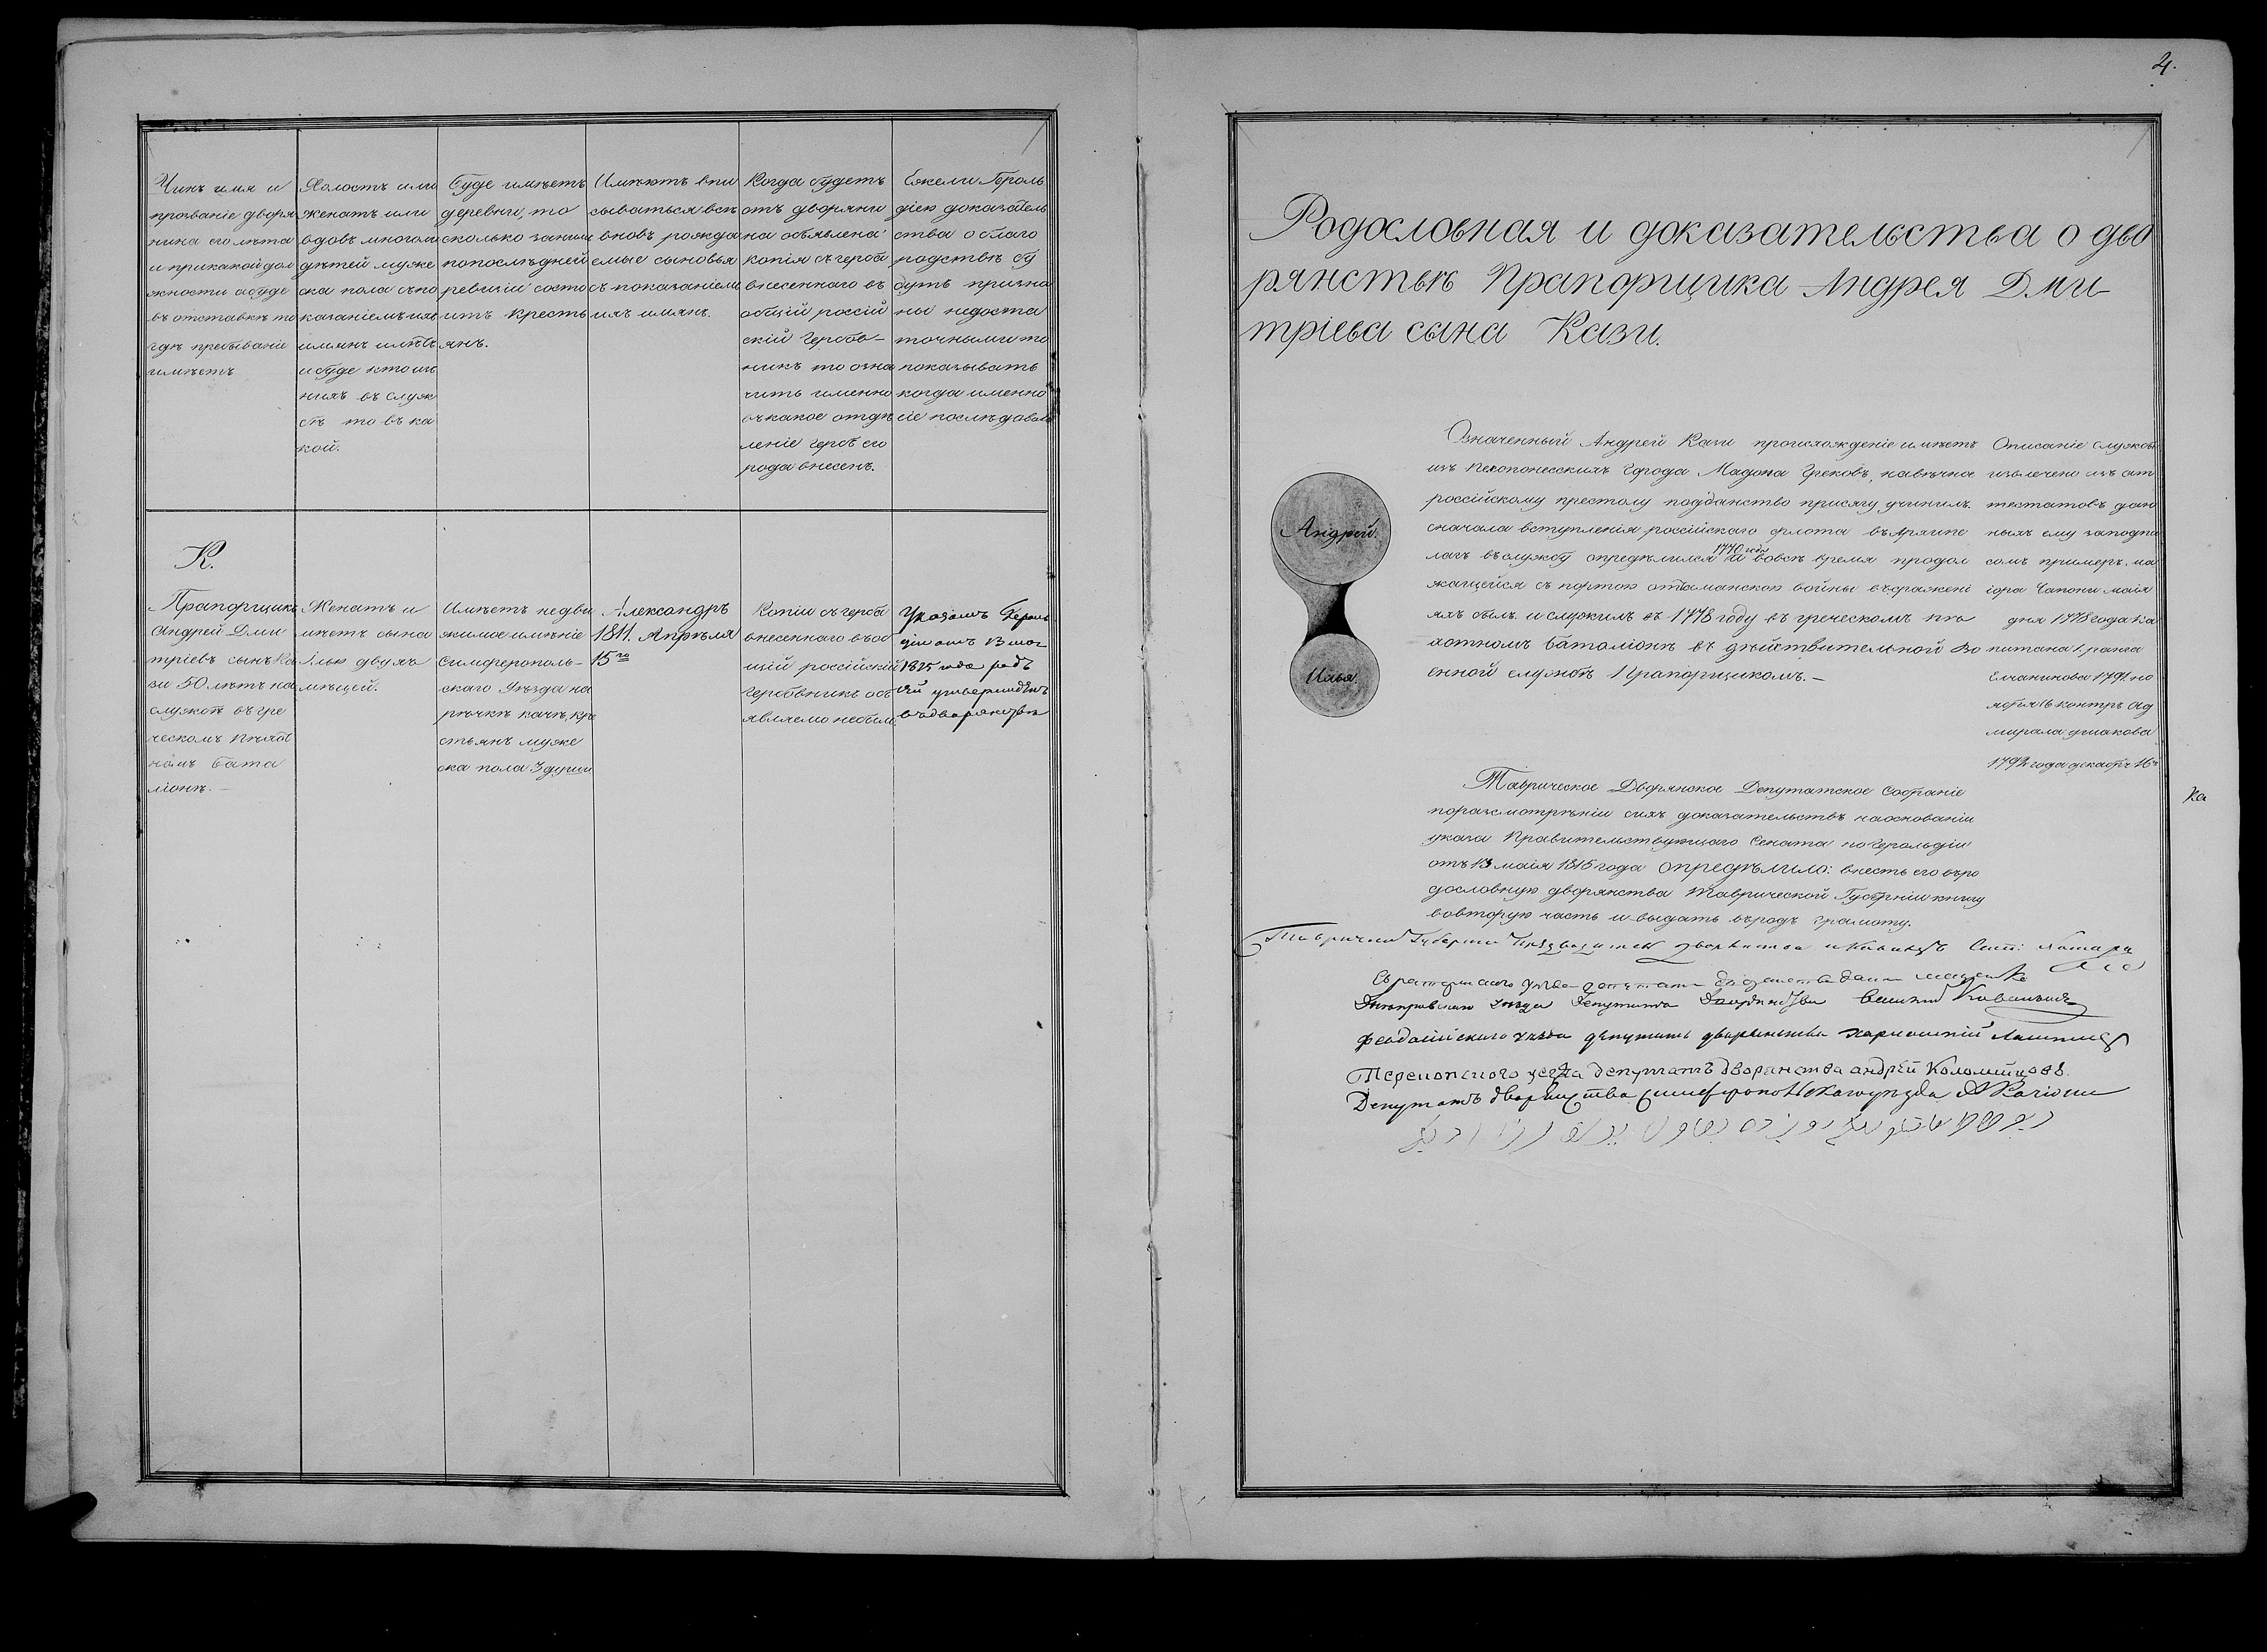 4.
Чинъ имя и
прозваніе дворя
нина его лѣта
и при какой дол
жности а буде
въ отставкѣ то
гдѣ пребываніе
имѣетъ
Холостъ или
женатъ или
вдовъ много ли
дѣтей муже
ска пола съ по
казаніемъ ихъ
имянъ и лѣтъ
и буде кто изъ
нихъ въ служ
бѣ то въ ка
кой.
Буде имѣетъ
деревни, то
сколько за ним
по послѣдней
ревизіи состо
итъ крестъ
янъ.
Имѣютъ впи
сываться всѣ
вновь рожда
емые сыновья
съ показаніемъ
ихъ имянъ.
Когда будетъ
отъ дворяни
на объявлена
копія съ герба
внесеннаго въ
общій россій
скій Гербов-
никъ то озна
чить именно
въ какое отдѣ
леніе гербъ его
рода внесенъ.
Ежели Героль
діею доказатель
ства о благо
родствѣ бу
дутъ призна
ны недоста
точными то
показывать
когда именно
сіе послѣдовало
К.
Прапорщикъ
Андрей Дми
тріевъ сынъ Ка
зи 50 лѣтъ на
службѣ въ гре
ческомъ Пѣхот
номъ бата
ліонѣ. —
Женатъ и
имѣетъ сына
Илью двухъ
мѣсцей.
Имѣетъ недви
жимое имѣніе
Симферополь-
скаго Уѣзда на
рѣчкѣ качѣ, кре
стьянъ муже
ска пола 3 души
Александръ
1811. Апрѣля
15го
Копіи съ герба
внесеннаго въ об
щій россійскій
Гербовникъ объ
являемо не было
Указомъ Героль
діи отъ 13 мая
1815 года родъ
сей утвержденъ
въ дворянствѣ
Родословная и доказательства о дво
рянствѣ Прапорщика Андрея Дми-
тріева сына Кази.
Андрей.
Илья.
Означенный Андрей Кази происхожденіе имѣетъ
изъ Пелопонесскихъ города Мадона Грековъ, на вѣчна
россійскому престолу подданство присягу учинилъ.
сначала вступленія россійскаго флота въ Архипе
лагъ въ службу опредѣлился 1770 года и во всѣ время продол
жащейся съ портою оттаманскою войны въ сраженi
яхъ былъ и служилъ въ 1778 году въ греческомъ пѣ
хотномъ баталіонѣ въ дѣйствительной во
енной службѣ Прапорщикомъ. —
Описаніе службы
извлечено изъ ат
тестатовъ дан
ныхъ ему за подпи
сомъ примеръ ма
іора Чапони маія
дня 1778 года ка
питана 1 ранга
Елчанинова 1791. но
ября 16 контръ ад
мирала ушакова
1792 года декабр. 16го
Таврическое Дворянское Депутатское Собраніе
по разсмотрѣніи сихъ доказательствъ на основаніи
указа Правительствующаго Сената по Герольдіи
отъ 13 маія 1815 года опредѣлило: внесть его въ ро
дословную дворянства Таврической Губерніи книгу
во вторую часть и выдать въ родъ грамоту.
Ка
Днѣпровскаго уѣзда Депутатъ Дворянства
Феодосійскаго уѣзда депутатъ дворянства
Перекопского уезда депутатъ дворанства андрей Коломийцовъ.
Депутатъ дворянства Симферопольскаго уѣзда